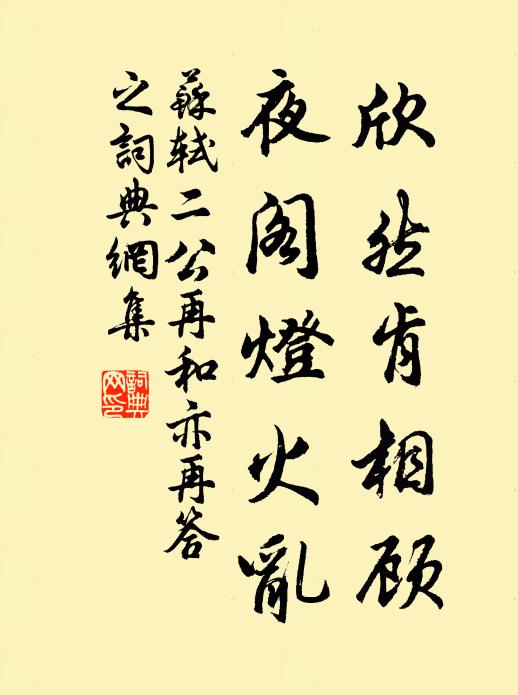 欣然肯相顾
夜阁燈火亂
蘇轼二公再和亦再答
之詞典網集
詞典网印